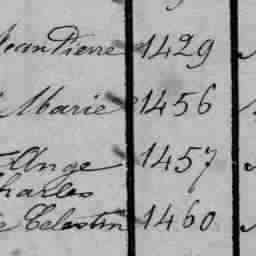 Jean Pierre 1429
Marie 1456
Ange 1457
Charles
Celestin 1460